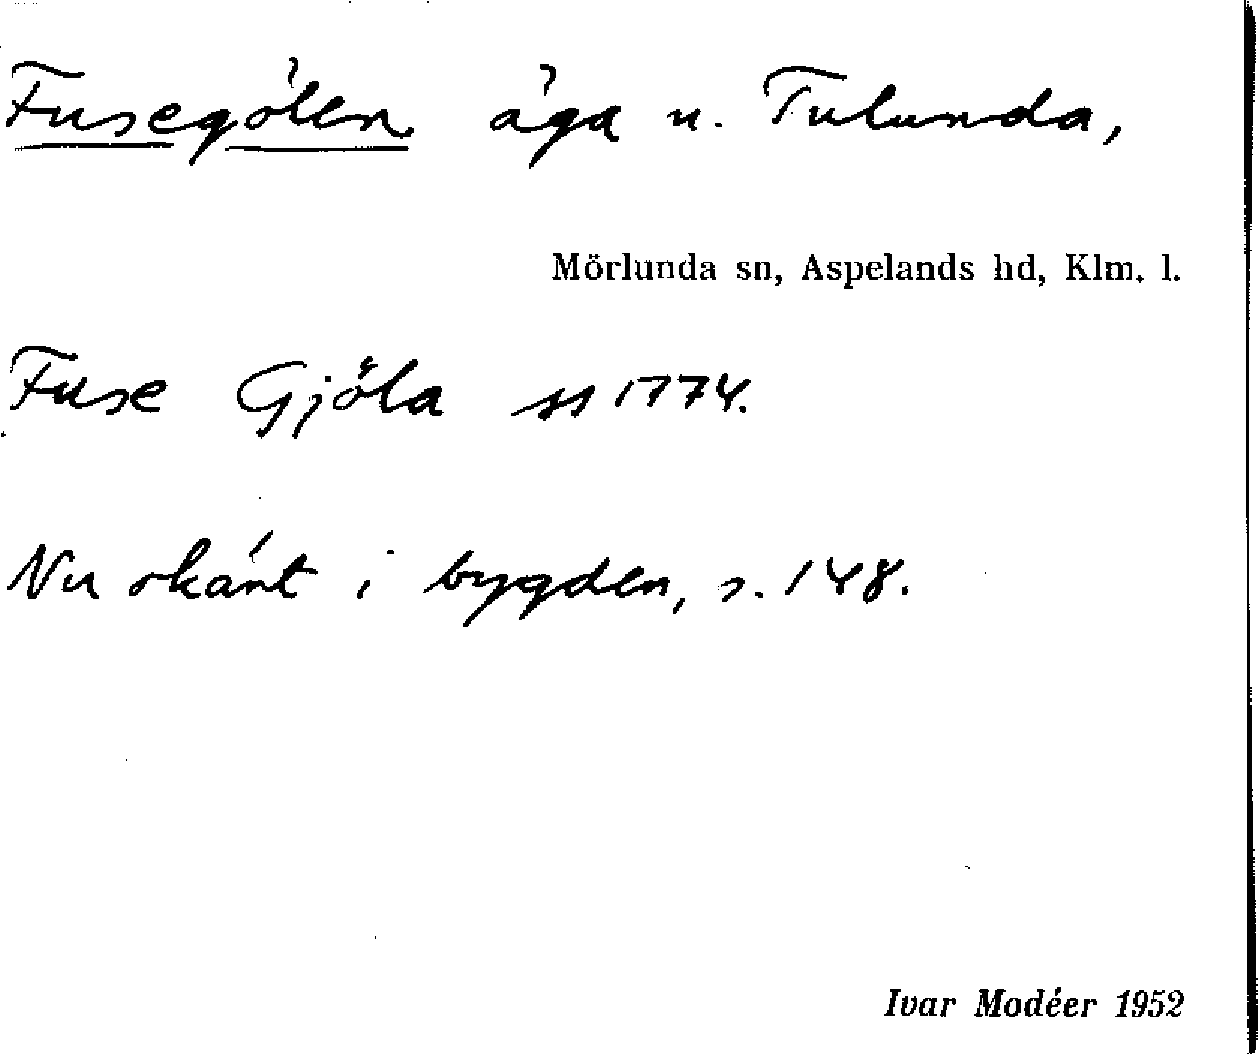 Fusegölen äga u. Tulunda,
Mörlunda sn, Aspelands hd, Klm. l.
Fuse Gjöla ss 1774.
Nu okänt i bygden, s. 148.
Ivar Modéer 1952